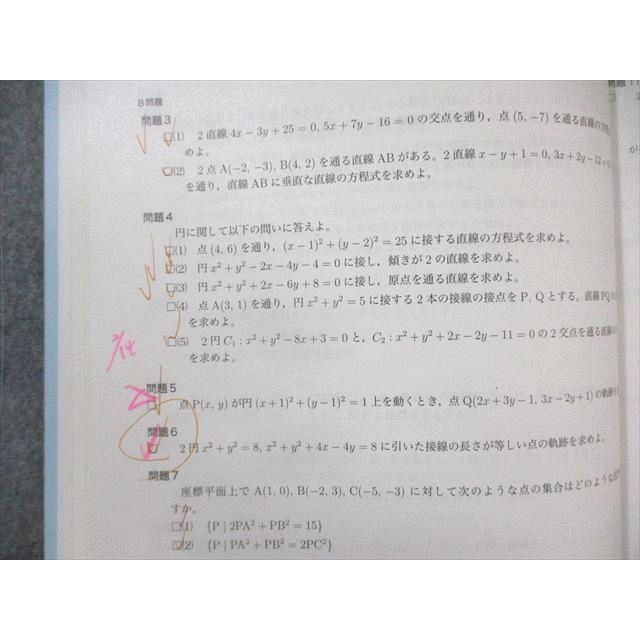 B問題
問題3
(1) 2直線 4x − 3y + 25 = 0, 5x + 7y − 16 = 0 の交点を通り，点 (5, −7) を通る直線の
めよ。
(2) 2点 A(−2, −3), B(4, 2) を通る直線 AB がある。2直線 x − y + 1 = 0, 3x + 2y − 12 =
を通り，直線 AB に垂直な直線の方程式を求めよ。
問題4
円に関して以下の問いに答えよ。
(1) 点 (4, 6) を通り，(x − 1)² + (y − 2)² = 25 に接する直線の方程式を求めよ。
(2) 円 x² + y² − 2x − 4y − 4 = 0 に接し，傾きが 2 の直線を求めよ。
(3) 円 x² + y² + 2x − 6y + 8 = 0 に接し，原点を通る直線を求めよ。
(4) 点 A(3, 1) を通り，円 x² + y² = 5 に接する 2 本の接線の接点を P, Q とする。直線 PQ
を求めよ。
(5) 2円 C₁ : x² + y² − 8x + 3 = 0 と，C₂ : x² + y² + 2x − 2y − 11 = 0 の 2 交点を通る直
を求めよ。
問題5
点 P(x, y) が円 (x + 1)² + (y − 1)² = 1 上を動くとき，点 Q(2x + 3y − 1, 3x − 2y + 1) の軌跡
問題6
2円 x² + y² = 8, x² + y² + 4x − 4y = 8 に引いた接線の長さが等しい点の軌跡を求めよ。
問題7
座標平面上で A(1, 0), B(−2, 3), C(−5, −3) に対して次のような点の集合はどのような
すか。
(1) {P | 2PA² + PB² = 15}
(2) {P | PA² + PB² = 2PC²}